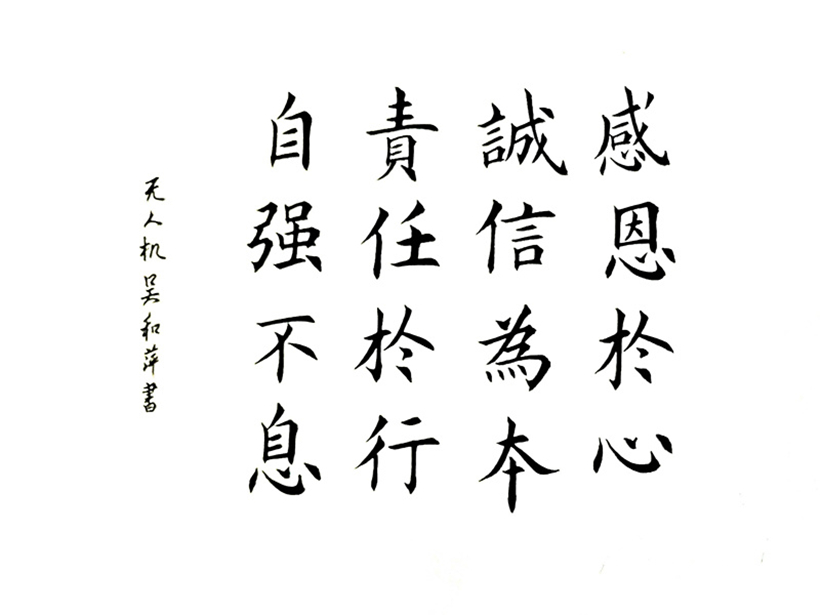 感恩於心
誠信為本
責任於行
自强不息
无人机吴和萍書